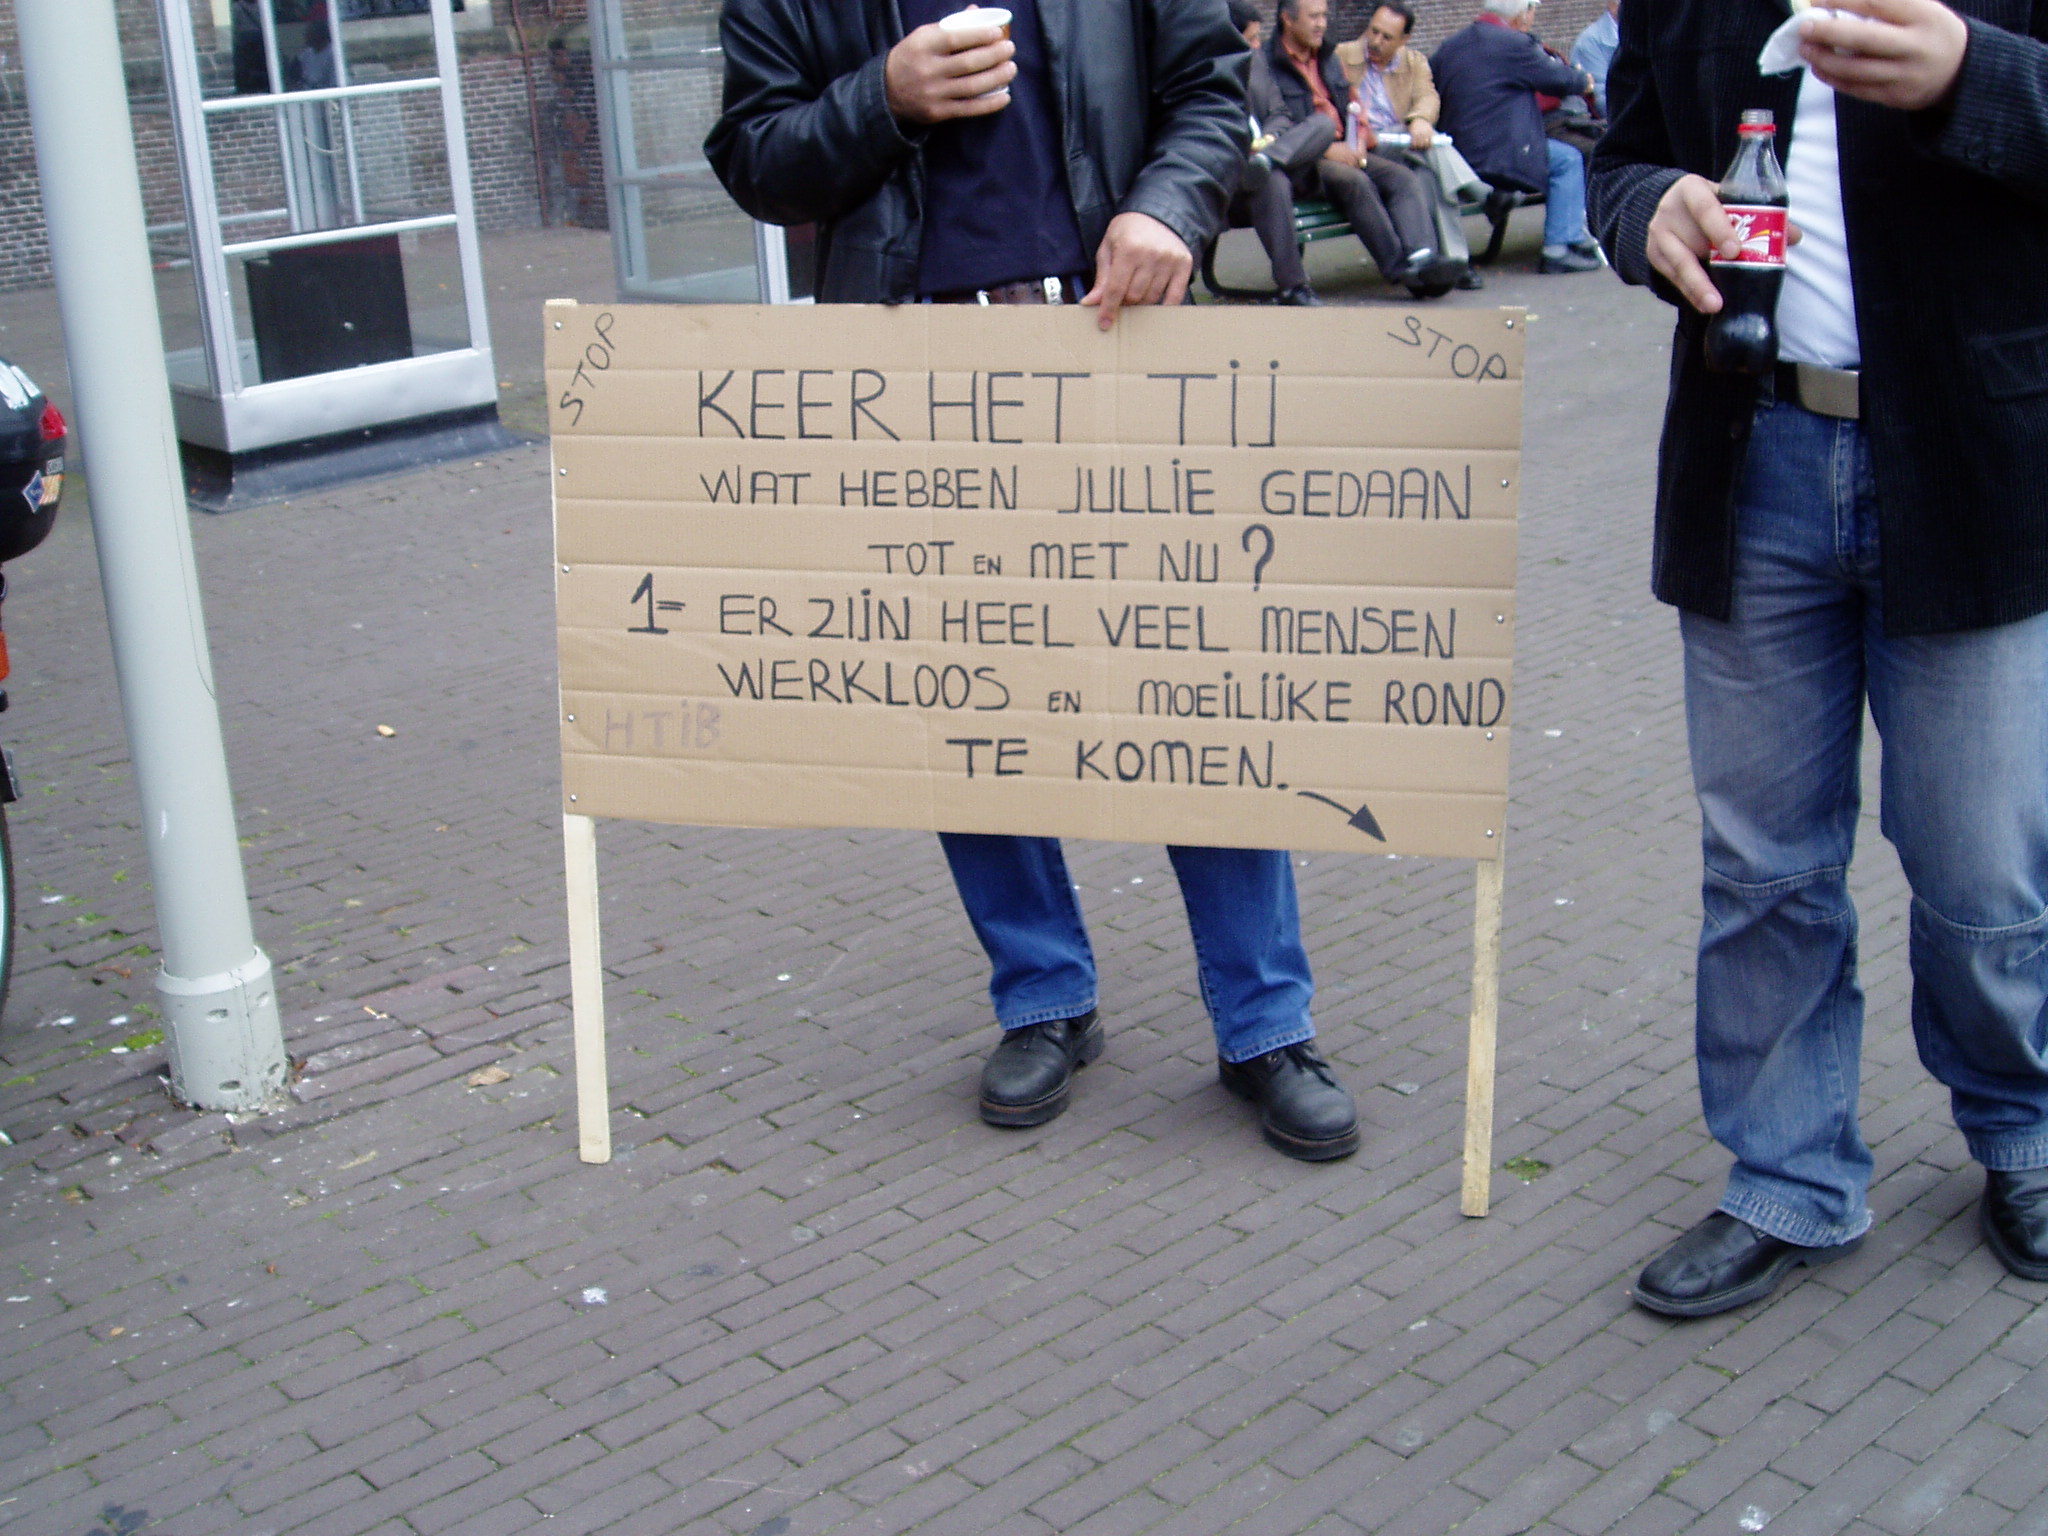 STOP
STOP
KEER HET TIJ
WAT HEBBEN JULLIE GEDAAN
TOT EN MET NU?
1= ER ZIJN HEEL VEEL MENSEN
WERKLOOS EN MOEILIJKE ROND
HTIB
TE KOMEN.